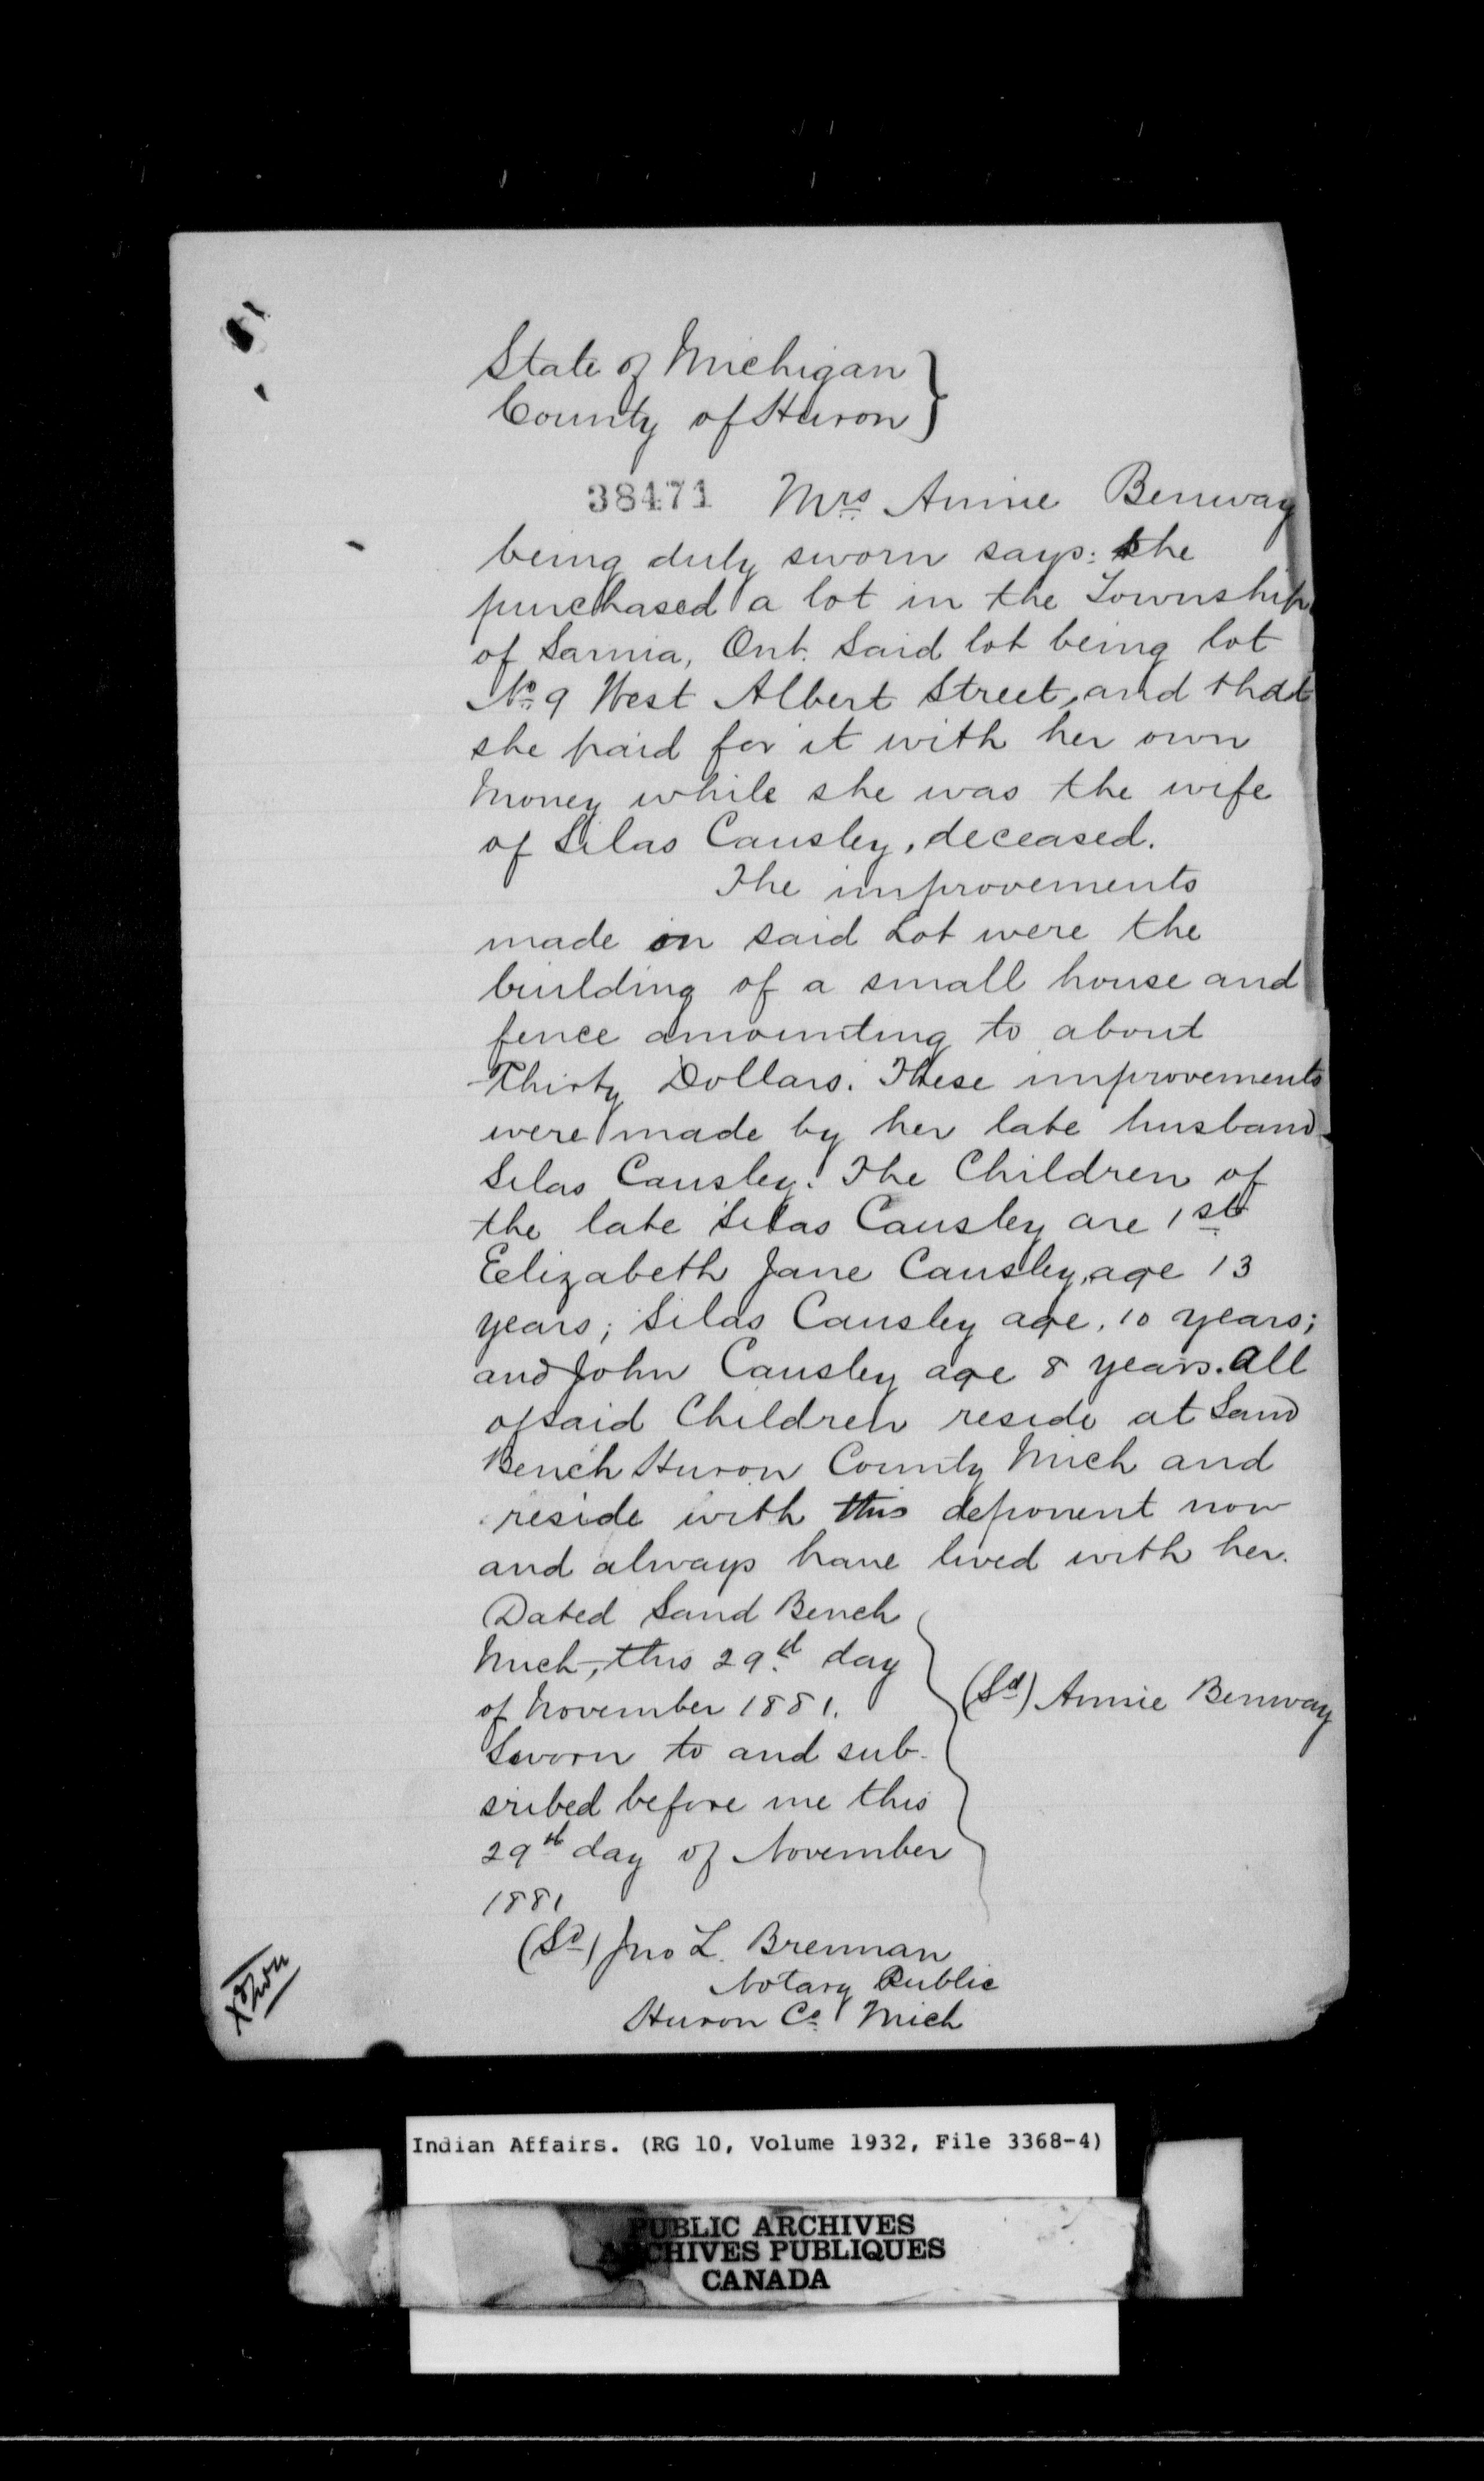 State of Michigan
County of Huron
38471 Mrs Annie Benway
being duly sworn says: she
purchased a lot in the Township
of Sarnia, Ont. Said lot being lot
No. 9 West Albert Street, and that
she paid for it with her own
Money while she was the wife
of Silas Causley, deceased.
The improvements
made on said Lot were the
building of a small house and
fence amounting to about
Thirty Dollars. These improvements
were made by her late husband
Silas Causley. The Children of
the late Silas Causley are 1st
Eelizabeth Jane Causley, age 13
years; Silas Causley age, 10 years;
and John Causley age 8 years. All
of said Children reside at Sand
Bench Huron County Mich and
reside with this deponent now
and always have lived with her.
Dated Sand Bench
Mich, this 29th day
of November 1881.
(Sd) Annie Benway
Sworn to and sub-
sribed before me this
29th day of November
1881
(Sd) Jno L. Brennan
Notary Public
Huron Co. Mich
Indian Affairs. (RG 10, Volume 1932, File 3368-4)
PUBLIC ARCHIVES
ARCHIVES PUBLIQUES
CANADA